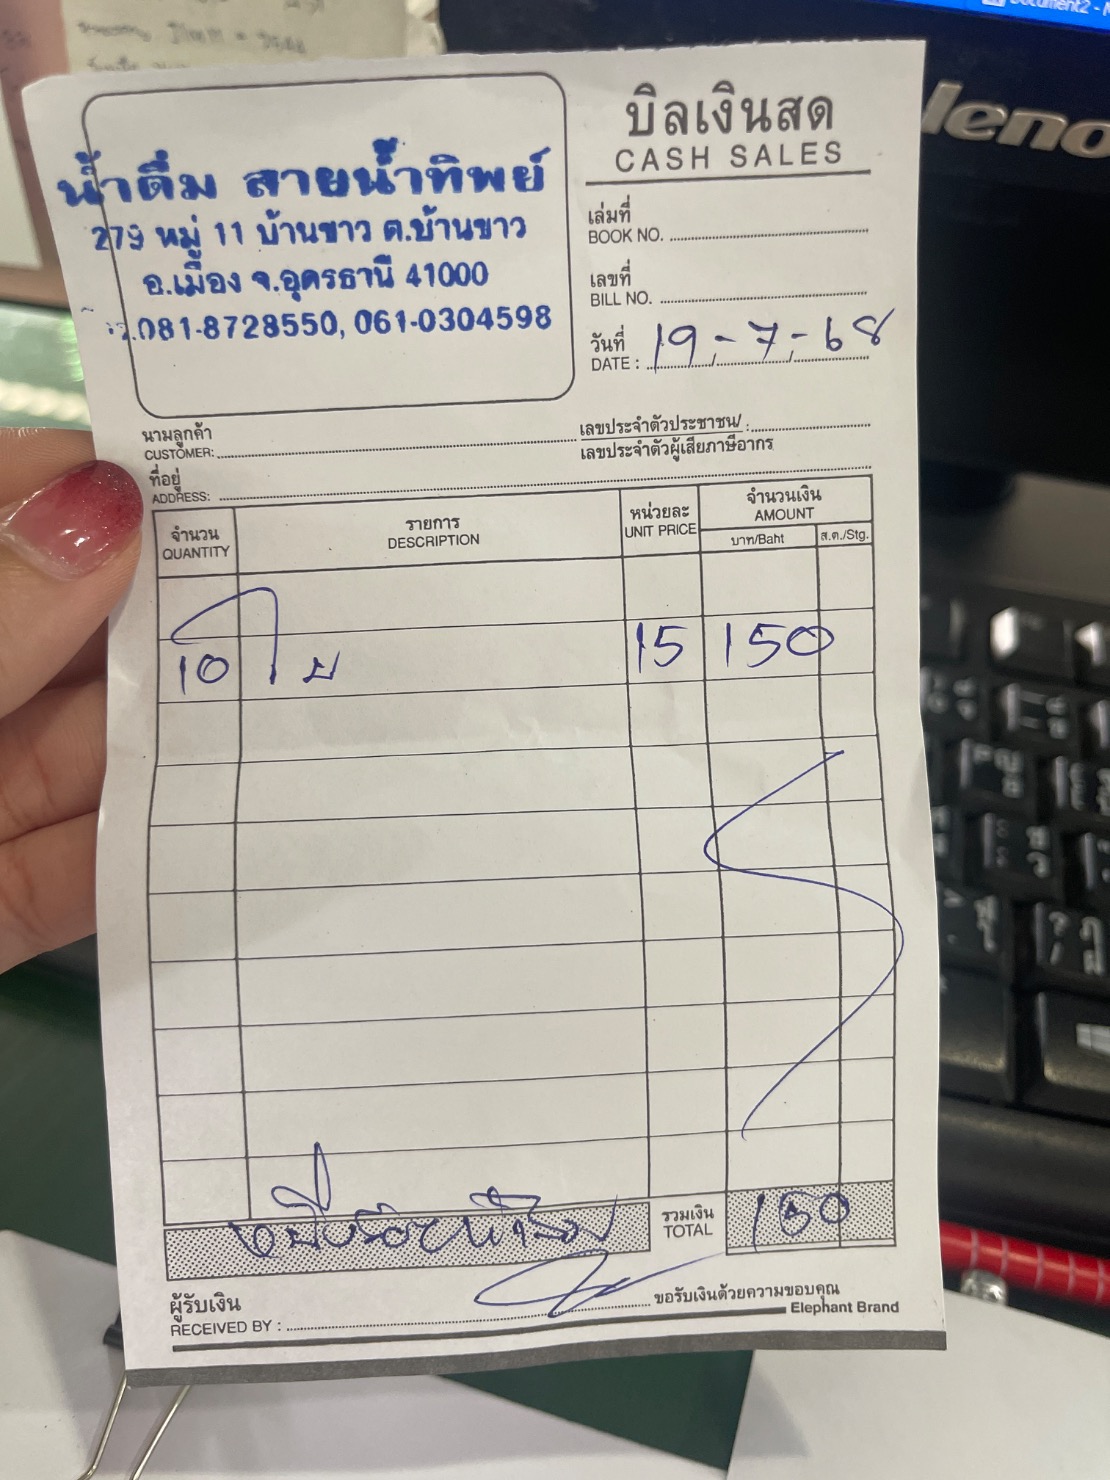 Document2 - M
leno
น้ำดื่ม สายน้ำทิพย์
279 หมู่ 11 บ้านขาว ต.บ้านขาว
อ.เมือง จ.อุดรธานี 41000
081-8728550, 061-0304598
บิลเงินสด
CASH SALES
เล่มที่
BOOK NO.
เลขที่
BILL NO.
วันที่
DATE : 19-7-68
นามลูกค้า
CUSTOMER:
เลขประจำตัวประชาชน/ :
เลขประจำตัวผู้เสียภาษีอากร
ที่อยู่
ADDRESS:
จำนวน รายการ หน่วยละ จำนวนเงิน
QUANTITY DESCRIPTION UNIT PRICE AMOUNT
บาท/Baht ส.ต./Stg.
10 ใบ 15 150
หนึ่งร้อยห้าสิบ
รวมเงิน
TOTAL 150
ผู้รับเงิน
RECEIVED BY :
ขอรับเงินด้วยความขอบคุณ
Elephant Brand